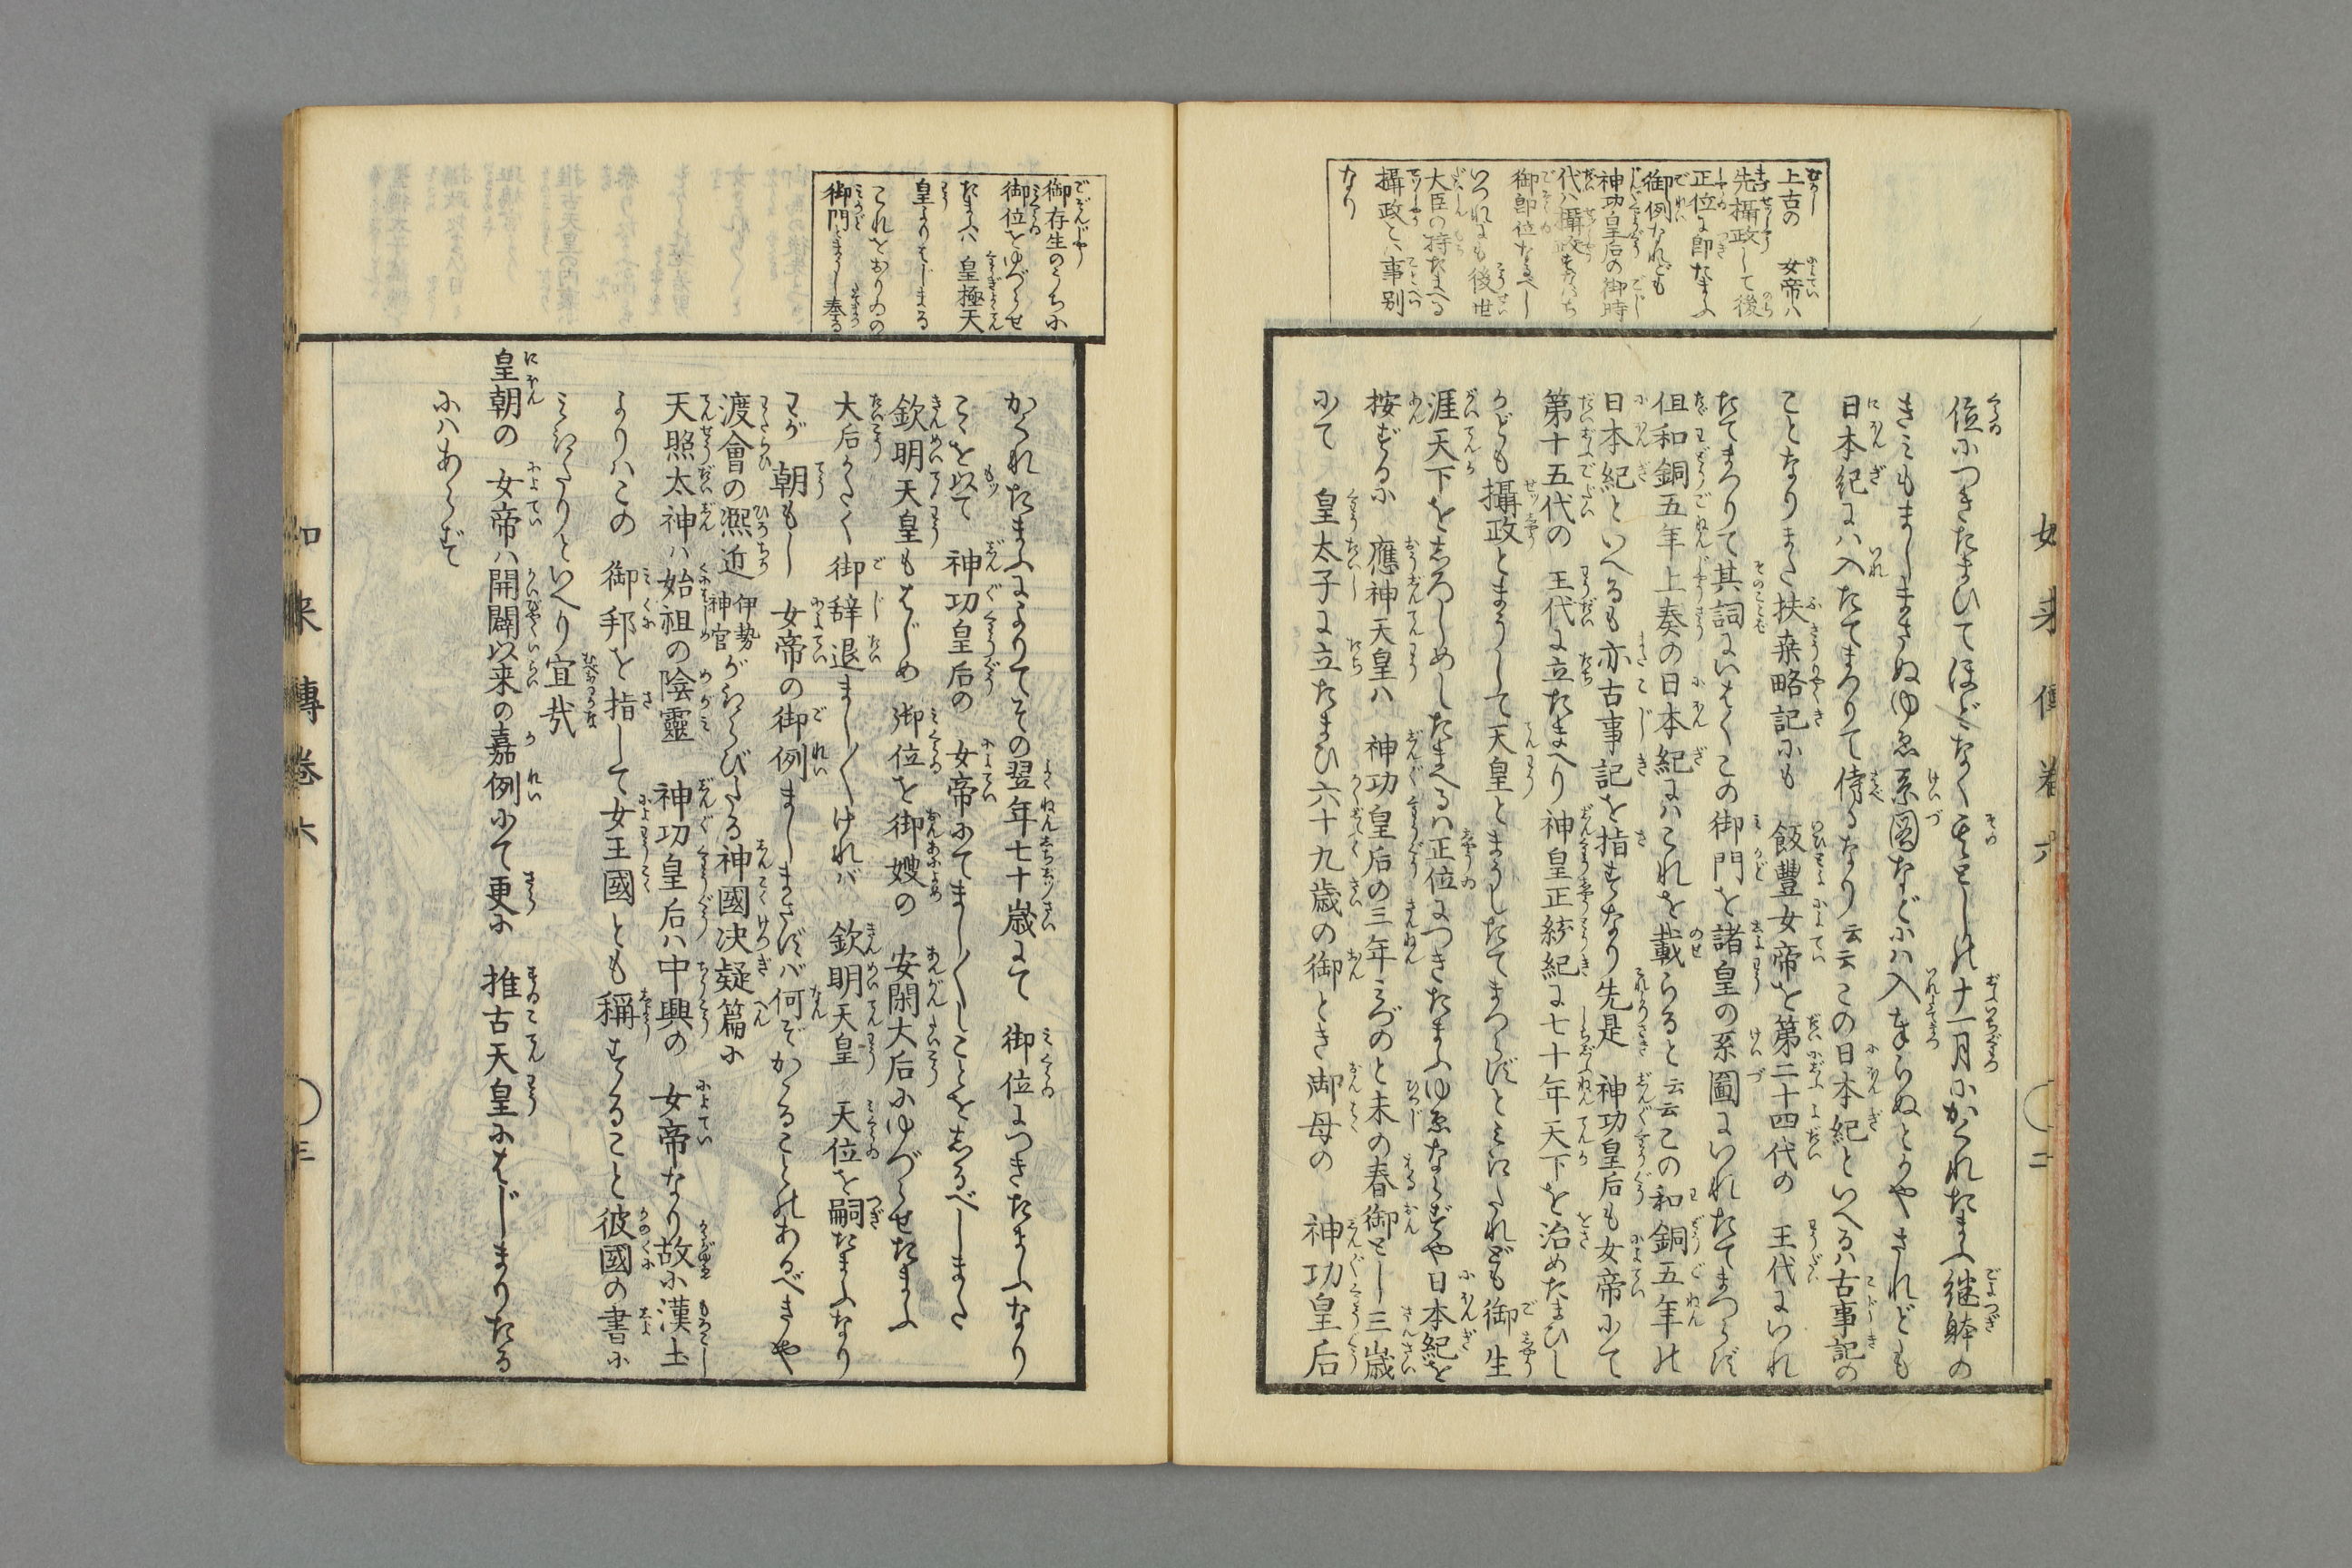 上古の 女帝ハ
先攝政して後
正位に即たまふ
御例なれども
神功皇后の御時
代ハ攝政すなはち
御即位なるべし
いづれにも後世
大臣の持たまへる
攝政とハ事別
なり
位につきたまひてほどなく其としの十一月にかくれたまへ継躰の
きミもましまさぬゆゑ系圖などにハ入奉らぬとかやされども
日本紀にハ入たてまつりて侍るなり云云この日本紀といへるハ古事記の
ことなりまた扶桒略記にも 飯豐女帝を第二十四代の 王代にいれ
たてまつりて其詞にいはくこの御門を諸皇の系圖にいれたてまつらず
但和銅五年上奏の日本紀にハこれを載らると云云この和銅五年の
日本紀といへるも亦古事記を指すなり先是 神功皇后も女帝にて
第十五代の 王代に立たまへり神皇正統紀に七十年天下を治めたまひし
かども攝政とまうして天皇とまうしたてまつらずとミえたれども御生
涯天下をしろしめしたまへるハ正位につきたまふゆゑならずや日本紀を
按ずるに 應神天皇ハ 神功皇后の三年みづのと未の春御とし三歳
にて 皇太子に立たまひ六十九歳の御とき御母の 神功皇后
如来傳巻六
二
御存生のうちに
御位をゆづらせ
たまふハ 皇極天
皇よりはじまる
これをおりゐの
御門とまうし奉る
かくれたまふによりてその翌年七十歳にて 御位につきたまふなり
こゝを以て 神功皇后の 女帝にてまし〳〵しことをしるべしまた
欽明天皇もはじめ 御位を御嫂の 安閑大后にゆづらせたまふ
大后かたく御辞退まし〳〵ければ 欽明天皇 天位を嗣たまふなり
わが 朝もし 女帝の御例ましまさずバ何ぞかゝることのあるべきや
渡會の凞近伊勢神官がえらびたる神國决疑篇に
天照太神ハ始祖の陰靈 神功皇后ハ中興の 女帝なり故に漢土
よりハこの 御邦を指して女王國とも稱することと彼國の書に
ミえたりといへり宜哉
皇朝の 女帝ハ開闢以来の嘉例にて更に 推古天皇にはじまりたる
にハあらず
如来傳巻六
三